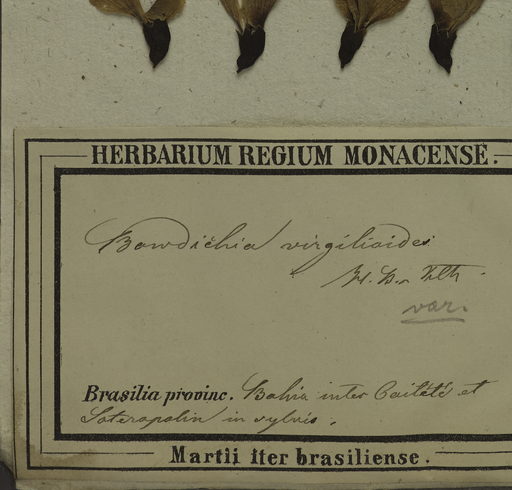 HERBARIUM REGIUM MONACENSE.
Bowdichia virgilioides
H. B. Kth
var.
Brasilia provinc. Bahia inter Caiteté et
Soteropolin in sylvis.
Martii iter brasiliense.